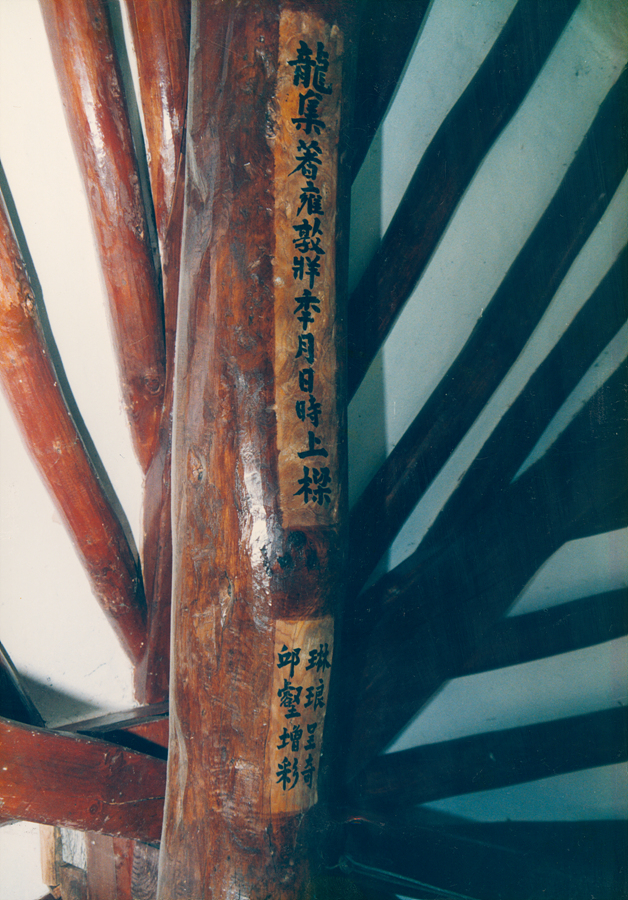 龍集著雍敦牂季月日時上樑
琳琅呈奇
邱壑增彩